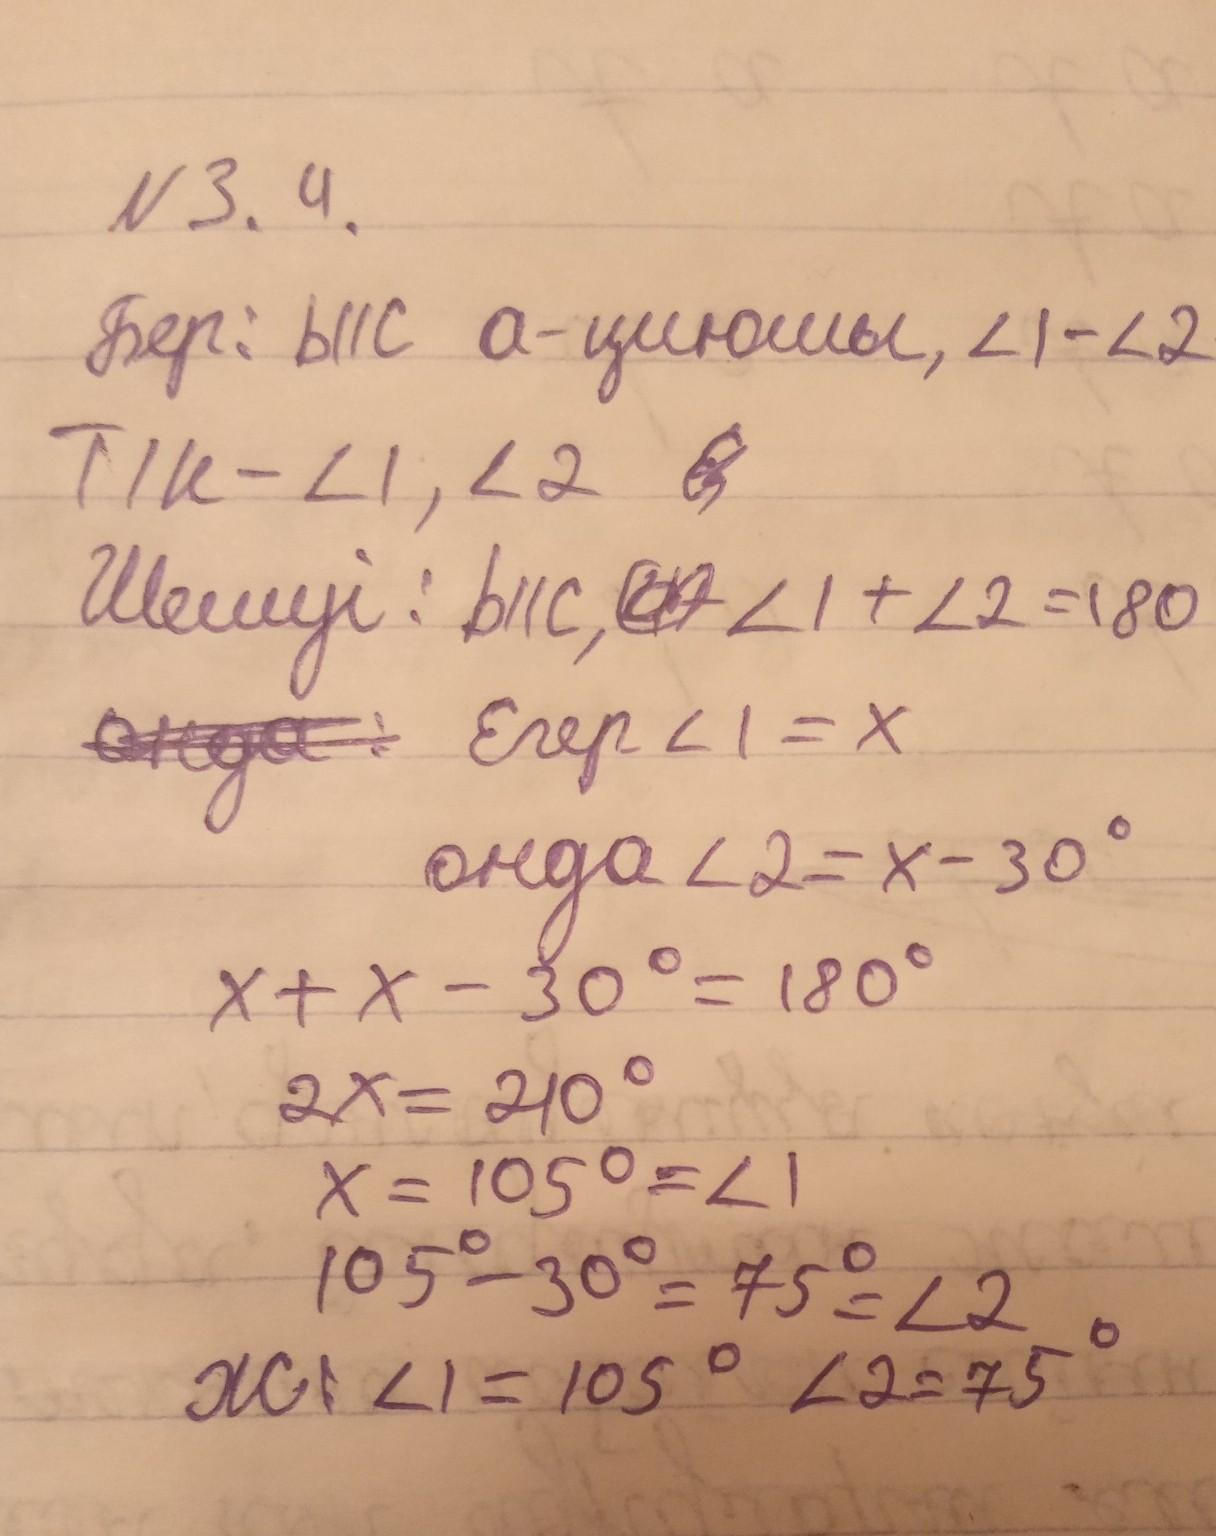 №3.4.
Бер: b||c a-қиюшы, ∠1-∠2
Т/к-∠1, ∠2
Шешуі: b||c, ∠1+∠2=180
онда: Егер ∠1=x
онда ∠2=x-30°
x+x-30°=180°
2x=210°
x=105°=∠1
105°-30°=75°=∠2
Ж: ∠1=105° ∠2=75°